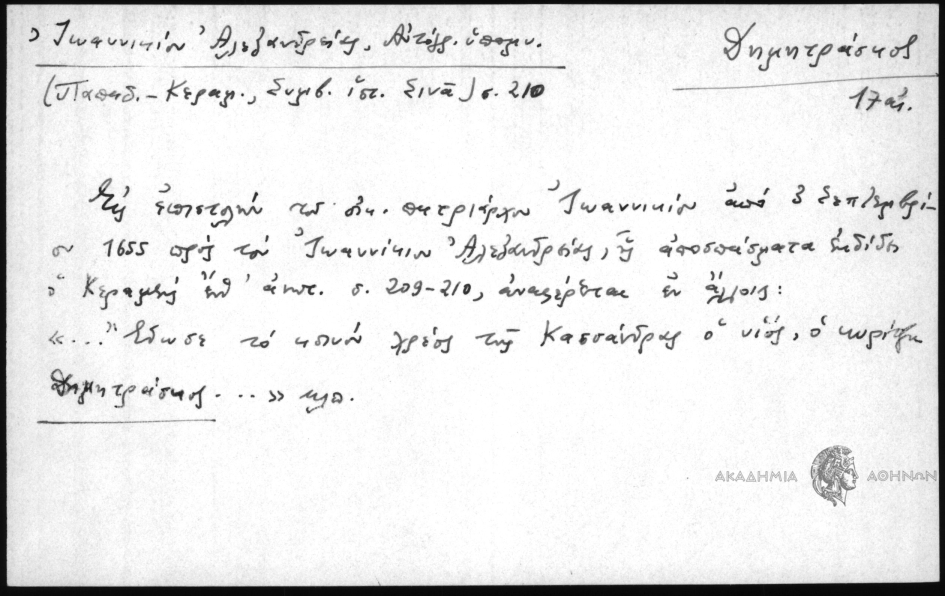 Ἰωαννικίου Ἀλεξανδρείας, Αὐτόγρ. ὑπομν.
Δημητράσκος
(Παπαδ. – Κεραμ., Συμβ. ἱστ. Σινᾶ) σ. 210
17 αἰ.
Εἰς ἐπιστολὴν τοῦ οἰκ. πατριάρχου Ἰωαννικίου ἀπό 3 Σεπτεμβρί-
ου 1655 πρός τόν Ἰωαννίκιον Ἀλεξανδρείας, ἧς ἀποσπάσματα ἐκδίδει
ὁ Κεραμεύς ἔνθ' ἀνωτ. σ. 209-210, ἀναφέρεται ἐν ἄλλοις:
«... Ἔδωσε τό κοινόν χρέος τῆς Κασσάνδρας ὁ υἱός, ὁ κυρίτζη
Δημητράσκος . . . » κλπ.
ΑΚΑΔΗΜΙΑ ΑΘΗΝΩΝ